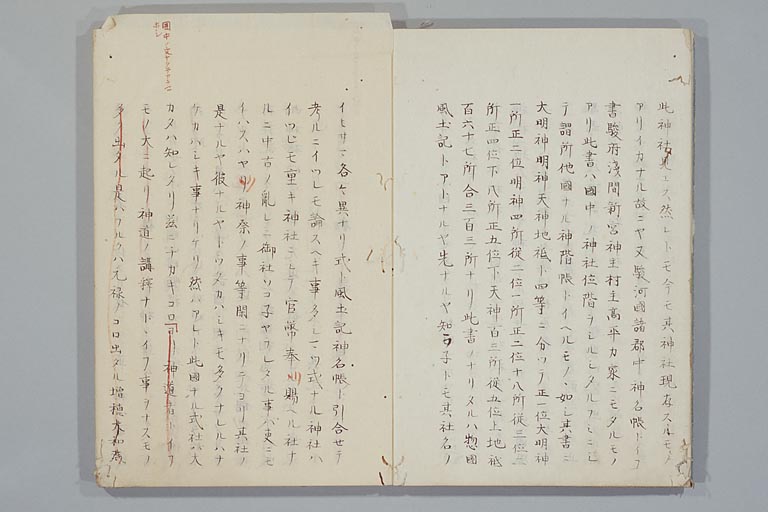 此神社見エス然レトモ今モ其神社現存スルモノ
アリイカナル故ニヤ又駿河國諸郡中神名帳トイフ
書駿府浅間新宮神主村主高平カ家ニモタルモノ
アリ此書ハ國中ノ神社位階ヲシルシタルフミニシ
テ謂所他國ナル神階帳トイヘルモノヽ如シ其書ニ
大明神明神天神地祗ト四等ニ分ツテ正一位大明神
一所正二位明神四所從二位一所正三位十八所從三位
所正四位下八所正五位下天神百三所從五位上地祗
百六十七所合三百三所ナリ此書ノナリタルハ惣國
風土記トアトナルヤ先ナルヤ知ラ子トモ其社名ノ
國中ノ文
各々異ナリ式ト風土記神名帳ト引合セテ
考ルニイツレモ論スヘキ事多シ一ツ式ナル神社ハ
イツレモ重キ神社ニシテ官幣奉リ賜ヘル社ナ
ルニ中古ノ亂レニ御社ソコ子ヤフレタル事ハ更ニモ
イハスハヤリ神祭ノ事等閑ニナリテ其社ノ
是ナルヤ彼ナルヤトウタカハシキモ多クナレルハナ
ケカハシキ事ナリケリ然ハアレト此國ナル式社ハ大
カタハ知レタリ茲ニチカキコロ神道者トイフ
モノ大ニ起リ神道ノ講釋ナトヽイフ事ヲナスモノ
多ク出タル是ハ元禄ノコロ出タル増穂